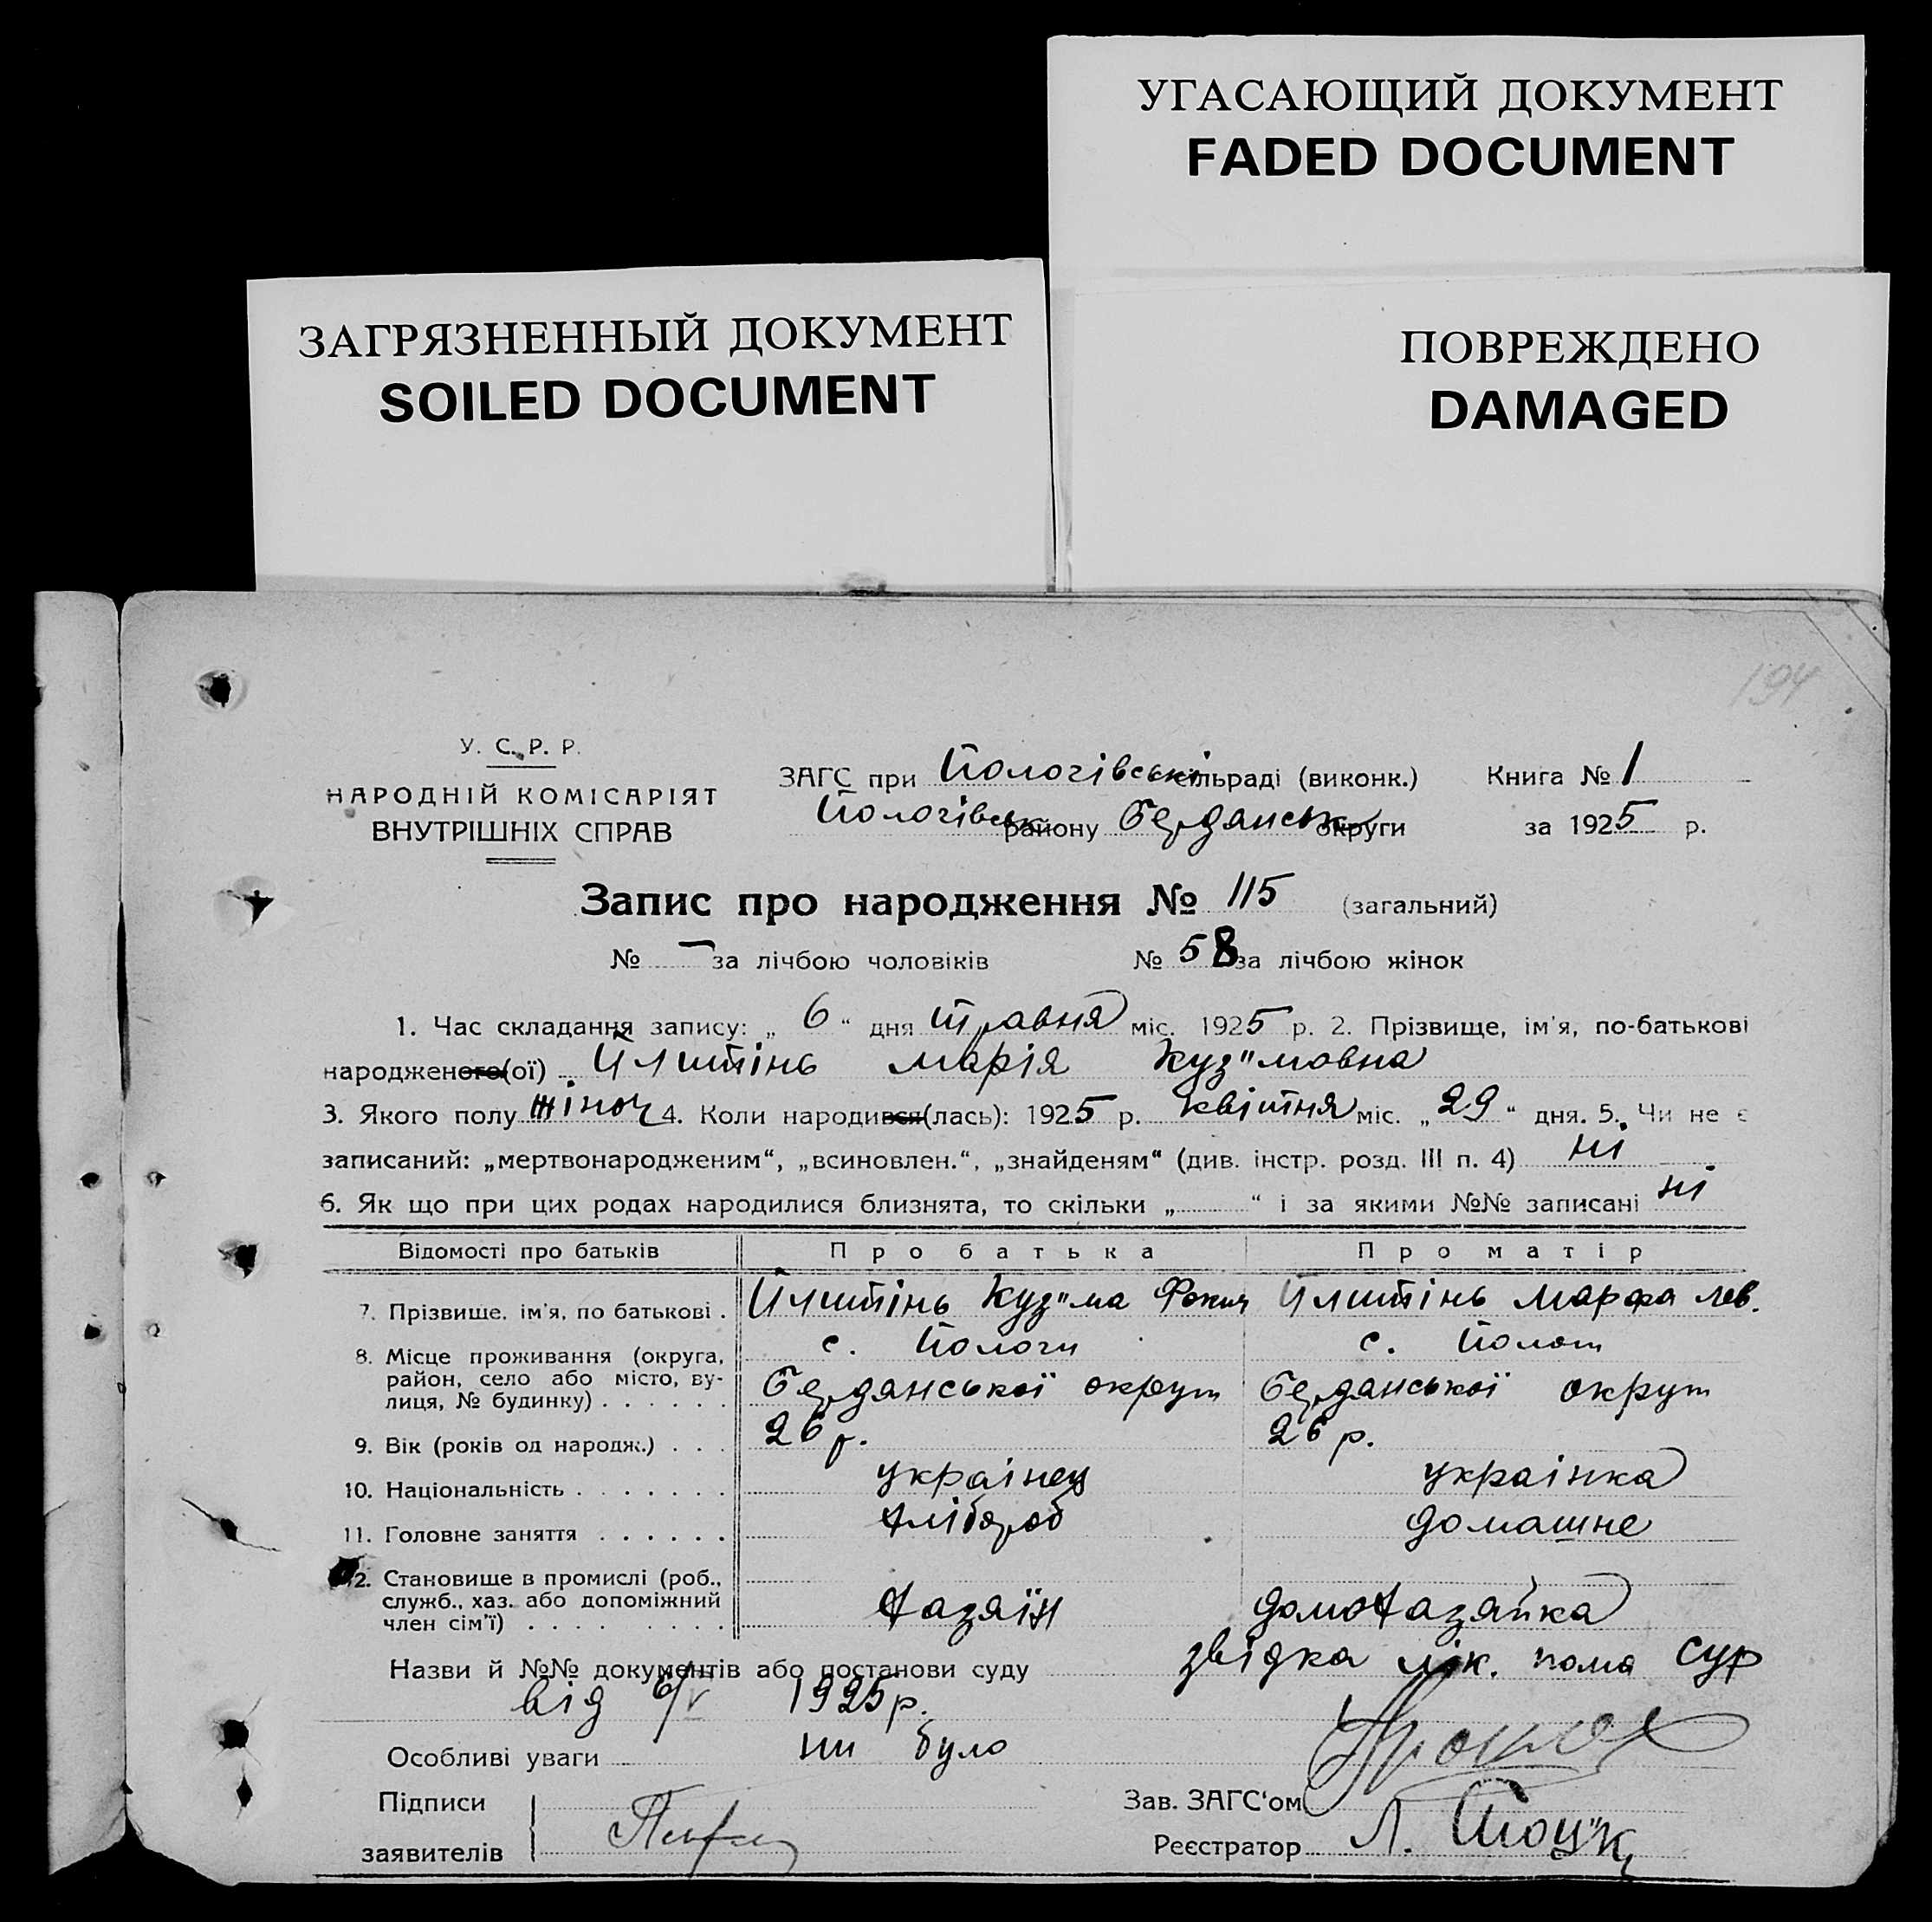 УГАСАЮЩИЙ ДОКУМЕНТ
FADED DOCUMENT
ЗАГРЯЗНЕННЫЙ ДОКУМЕНТ
SOILED DOCUMENT
ПОВРЕЖДЕНО
DAMAGED
194
У. С. Р. Р.
НАРОДНІЙ КОМІСАРІЯТ
ВНУТРІШНІХ СПРАВ
ЗАГС при Пологівські сільраді (виконк.) Книга № 1
Пологівськ району Бердянськ округи за 1925 р.
Запис про народження № 115 (загальний)
№ — за лічбою чоловіків № 58 за лічбою жінок
1. Час складання запису: „ 6 “ дня травня міс. 1925 р. 2. Прізвище, ім'я, по-батькові
народженого(ої) Марія Куз"мовна
3. Якого полу жіноч 4. Коли народився(лась): 1925 р. квітня міс. „ 29 “ дня. 5. Чи не є
записаний: „мертвонародженим“, „всиновлен.“, „знайденям“ (див. інстр. розд. III п. 4) ні
6. Як що при цих родах народилися близнята, то скільки „ “ і за якими №№ записані ні
Відомості про батьків Про батька Про матір
7. Прізвище, ім'я, по батькові . Куз"ма Фокич Марфа Лев.
8. Місце проживання (округа, с. Пологи с. Пологи
район, село або місто, ву- Бердянської округи Бердянської округи
лиця, № будинку) . . . . . .
9. Вік (років од народж.) . . . 26 р. 26 р.
10. Національність . . . . . . . українец українка
11. Головне заняття . . . . . . хлібороб домашне
12. Становище в промислі (роб.,
служб., хаз. або допоміжний хазяїн домохазяйка
член сім'ї) . . . . . . . .
Назви й №№ документів або постанови суду звідка лік. пома
від 6/V 1925 р.
Особливі уваги ни було
Підписи Зав. ЗАГС'ом
заявителів Реєстратор Л.